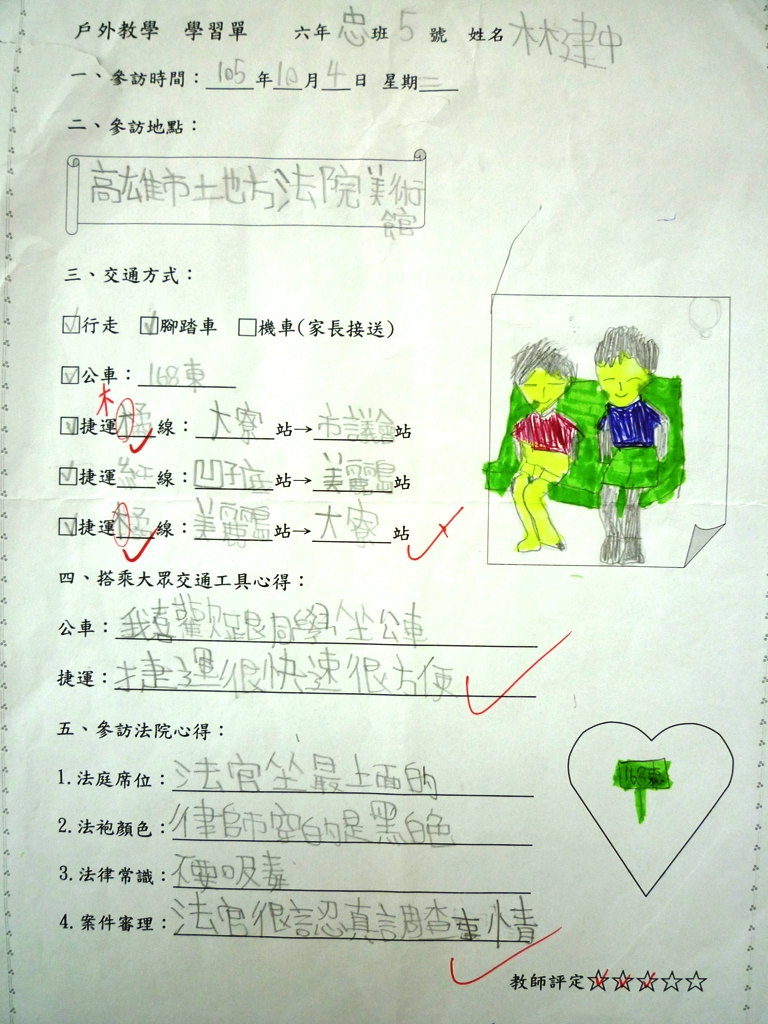 戶外教學 學習單 六年忠班5號 姓名林建中
一、參訪時間：105年10月4日 星期二
二、參訪地點：
高雄市土地方法院美術
館
三、交通方式：
☑行走 ☑腳踏車 □機車(家長接送)
☑公車：168東
木
☑捷運橘線：大寮站→市議會站
☑捷運紅線：凹子底站→美麗島站
☑捷運橘線：美麗島站→大寮站
四、搭乘大眾交通工具心得：
公車：我喜歡跟同學坐公車
捷運：捷運很快速很方便
五、參訪法院心得：
1.法庭席位：法官坐最上面的
168東
2.法袍顏色：律師穿的是黑白色
3.法律常識：不要吸毒
4.案件審理：法官很認真調查事情
教師評定☆☆☆☆☆